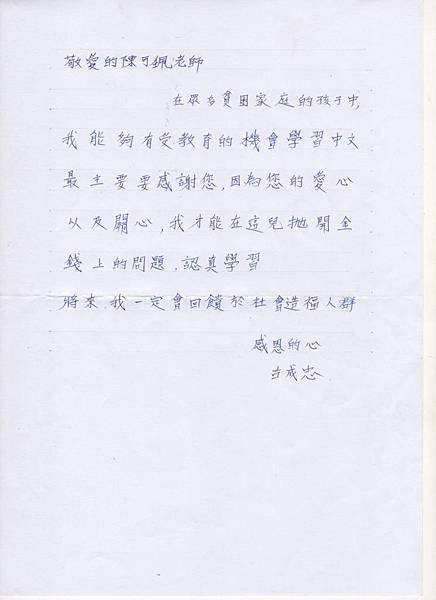 敬愛的陳可珮老師
在眾多貧困家庭的孩子中,
我能夠有受教育的機會學習中文
最主要要感謝您,因為您的愛心
以及關心,我才能在這兒拋開金
錢上的問題,認真學習
將來,我一定會回饋於社會造福人群
感恩的心
成忠